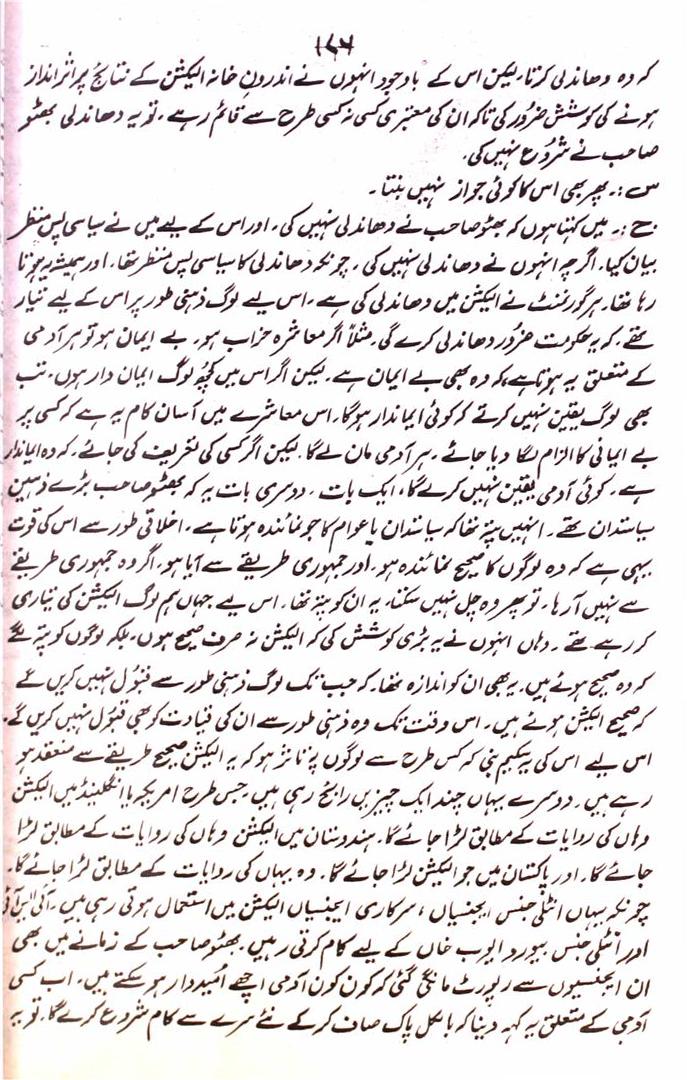 ۱۷۶
کہ وہ دھاندلی کرتا، لیکن اس کے باوجود انہوں نے اندرونِ خانہ الیکشن کے نتائج پر اثر انداز
ہونے کی کوشش ضرور کی تاکہ ان کی معتبری کسی نہ کسی طرح سے قائم رہے، تو یہ دھاندلی بھٹو
صاحب نے شروع نہیں کی۔
س :۔ پھر بھی اس کا کوئی جواز نہیں بنتا۔
ج :۔ میں کہتا ہوں کہ بھٹو صاحب نے دھاندلی نہیں کی۔ اور اس کے لیے میں نے سیاسی پس منظر
بیان کیا۔ اگرچہ انہوں نے دھاندلی نہیں کی، چونکہ دھاندلی کا سیاسی پس منظر تھا۔ اور ہمیشہ یہ ہوتا
رہا تھا۔ ہر گورنمنٹ نے الیکشن میں دھاندلی کی ہے۔ اس لیے لوگ ذہنی طور پر اس کے لیے تیار
تھے، کہ یہ حکومت ضرور دھاندلی کرے گی۔ مثلاً اگر معاشرہ خراب ہو۔ بے ایمان ہو تو ہر آدمی
کے متعلق یہ ہوتا ہے، کہ وہ بھی بے ایمان ہے۔ لیکن اگر اس میں کچھ لوگ ایمان دار ہوں۔ تب
بھی لوگ یقین نہیں کرتے کہ کوئی ایماندار ہوگا۔ اس معاشرے میں آسان کام یہ ہے کہ کسی پر
بے ایمانی کا الزام لگا دیا جائے۔ ہر آدمی مان لے گا۔ لیکن اگر کسی کی تعریف کی جائے، کہ وہ ایماندار
ہے۔ کوئی آدمی یقین نہیں کرے گا، ایک بات۔ دوسری بات یہ کہ بھٹو صاحب بڑے ذہین
سیاستدان تھے۔ انہیں پتہ تھا کہ سیاستدان یا عوام کا جو نمائندہ ہوتا ہے۔ اخلاقی طور سے اس کی قوت
یہی ہے کہ وہ لوگوں کا صحیح نمائندہ ہو۔ اور جمہوری طریقے سے آیا ہو۔ اگر وہ جمہوری طریقے
سے نہیں آ رہا۔ تو پھر وہ چل نہیں سکتا، یہ ان کو پتہ تھا۔ اس لیے جہاں ہم لوگ الیکشن کی تیاری
کر رہے تھے۔ وہاں انہوں نے یہ بڑی کوشش کی کہ الیکشن نہ صرف صحیح ہوں، بلکہ لوگوں کو پتہ لگے
کہ وہ صحیح ہوئے ہیں۔ یہ بھی ان کو اندازہ تھا۔ کہ جب تک لوگ ذہنی طور سے قبول نہیں کریں گے
کہ صحیح الیکشن ہوئے ہیں۔ اس وقت تک وہ ذہنی طور سے ان کی قیادت کو بھی قبول نہیں کریں گے۔
اس لیے اس کی یہ سکیم بنی کہ کس طرح سے لوگوں پر تاثر ہو کہ یہ الیکشن صحیح طریقے سے منعقد ہو
رہے ہیں۔ دوسرے یہاں چند ایک چیزیں رائج رہی ہیں۔ جس طرح امریکہ یا انگلینڈ میں الیکشن
وہاں کی روایات کے مطابق لڑا جائے گا۔ ہندوستان میں الیکشن وہاں کی روایات کے مطابق لڑا
جائے گا۔ اور پاکستان میں جو الیکشن لڑا جائے گا۔ وہ یہاں کی روایات کے مطابق لڑا جائے گا۔
چونکہ یہاں انٹیلی جنس ایجنسیاں، سرکاری ایجنسیاں الیکشن میں استعمال ہوتی رہی ہیں۔ آئی ایس آئی
اور انٹیلی جنس بیورو ایوب خاں کے لیے کام کرتی رہیں۔ بھٹو صاحب کے زمانے میں بھی
ان ایجنسیوں سے رپورٹ مانگی گئی کہ کون کون آدمی اچھے اُمیدوار ہو سکتے ہیں۔ اب کسی
آدمی کے متعلق یہ کہہ دینا کہ بالکل پاک صاف کر کے نئے سرے سے کام شروع کرے گا۔ تو یہ